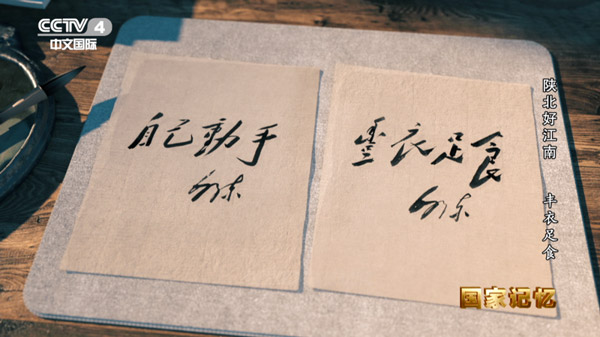 CCTV 4
中文国际
自己動手
豐衣足食
陕北好江南
丰衣足食
国家记忆